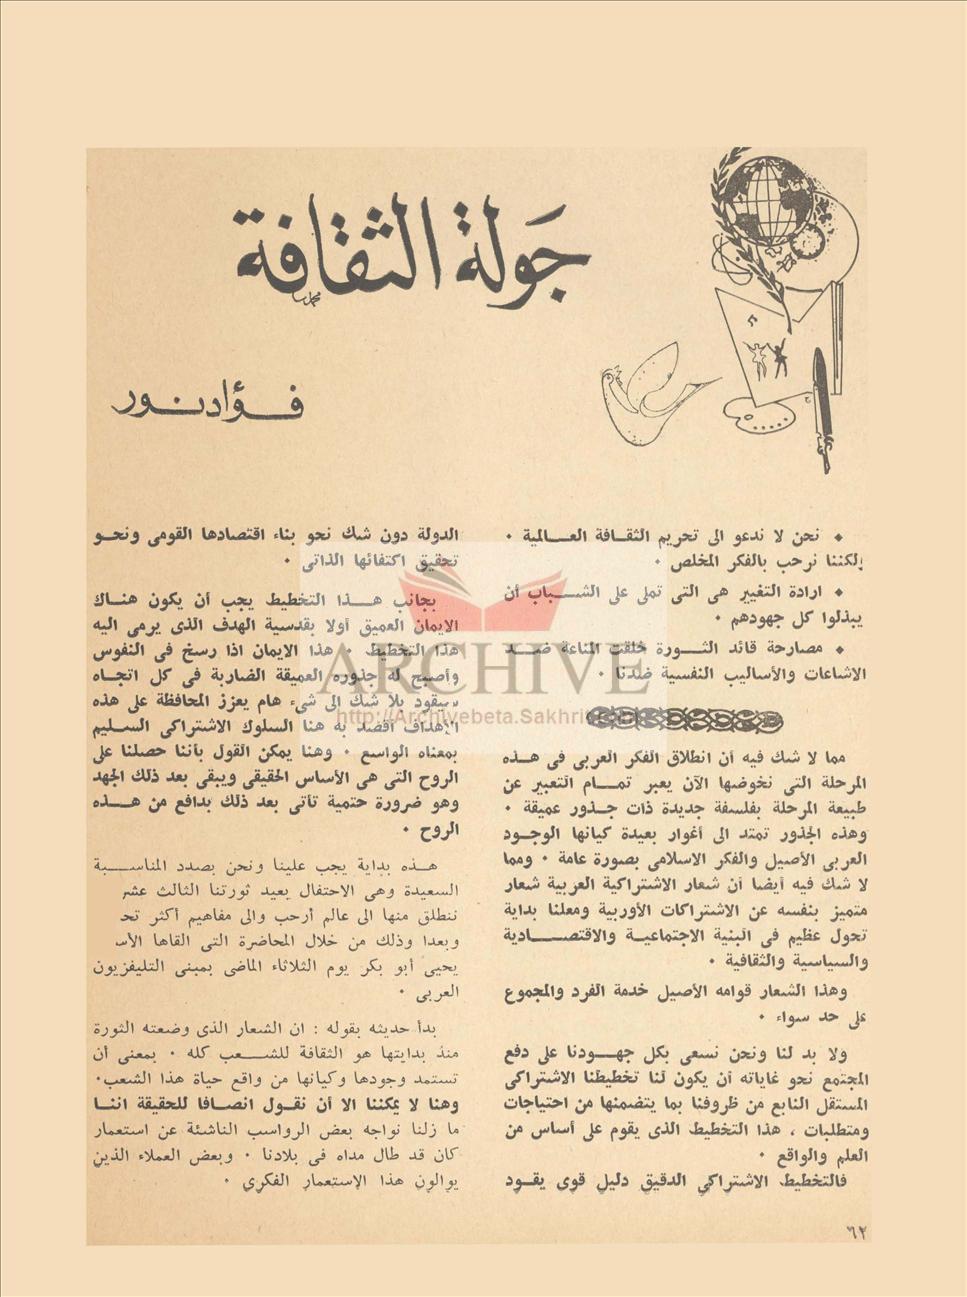 جولة الثقافة
فؤاد نور
نحن لا ندعو الى تحريم الثقـافة العـــالمية ٠
ولكننا نرحب بالفكر المخلص ٠
ارادة التغيير هى التى تملى على الشــباب أن
يبذلوا كل جهودهم ٠
مصارحة قائد الثــورة خلقت المناعة ضــد
الاشاعات والأساليب النفسية ضدنا ٠
مما لا شك فيه أن انطلاق الفكر العربى فى هــذه
المرحلة التى نخوضها الآن يعبر تمــام التعبير عن
طبيعة المرحلة بفلسفة جديدة ذات جــذور عميقة ٠
وهذه الجذور تمتد الى أغوار بعيدة كيانها الوجـود
العربى الأصيل والفكر الاسلامى بصورة عامة ٠ ومما
لا شك فيه أيضا أن شعار الاشتراكية العربية شعار
متميز بنفسه عن الاشتراكات الأوربية ومعلنا بداية
تحول عظيم فى البنية الاجتماعيـة والاقتصـــادية
والسياسية والثقافية ٠
وهذا الشعار قوامه الأصيل خدمة الفرد والمجموع
على حد سواء ٠
ولا بد لنا ونحن نسعى بكل جهــودنا على دفع
المجتمع نحو غاياته أن يكون لنا تخطيطنا الاشتراكى
المستقل النابع من ظروفنا بما يتضمنها من احتياجات
ومتطلبات ، هذا التخطيط الذى يقوم على أساس من
العلم والواقع ٠
فالتخطيط الاشتراكي الدقيق دليل قوى يقـود
الدولة دون شك نحو بناء اقتصادها القومى ونحـو
تحقيق اكتفائها الذاتى ٠
بجانب هـــذا التخطيط يجب أن يكون هنــاك
الايمان العميق أولا بقدسية الهدف الذى يرمى اليه
هذا التخطيط ٠ هذا الايمان اذا رسخ فى النفوس
وأصبح له جذوره العميقة الضاربة فى كل اتجـاه
سيقود بلا شك الى شىء هام يعزز المحافظة على هذه
الأهداف أقصد به هنا السلوك الاشتراكى السـليم
بمعناه الواسع ٠ وهنا يمكن القول بأننا حصلنا على
الروح التى هى الأساس الحقيقى ويبقى بعد ذلك الجهد
وهو ضرورة حتمية تأتى بعد ذلك بدافع من هــذه
الروح ٠
هــذه بداية يجب علينا ونحن بصدد المناســـبة
السعيدة وهى الاحتفال بعيد ثورتنا الثالث عشر
ننطلق منها الى عالم أرحب والى مفاهيم أكثر تحـ
وبعدا وذلك من خلال المحاضرة التى القاها الأسـ
يحيى أبو بكر يوم الثلاثاء الماضى بمبنى التليفزيون
العربى ٠
بدأ حديثه بقوله : ان الشعار الذى وضعته الثورة
منذ بدايتها هو الثقافة للشــعب كله ٠ بمعنى أن
تستمد وجودها وكيانها من واقع حياة هذا الشعب٠
وهنا لا يمكننا الا أن نقـول انصـافا للحقيقة اننـا
ما زلنا نواجه بعض الرواسب الناشئة عن استعمار
كان قد طال مداه فى بلادنا ٠ وبعض العملاء الذين
يوالون هذا الإستعمار الفكري ٠
٦٢
ARCHIVE
http://Archivebeta.Sakhrit